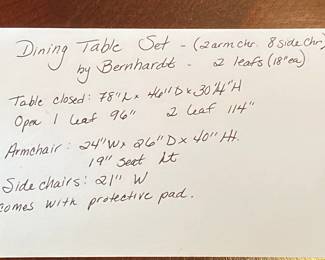 Dining Table Set - (2 arm chr. 8 side Chr.)
by Bernhardt - 2 leafs (18" ea)
Table closed: 78" L x 46" D x 30 1/4" H
Open 1 leaf 96" 2 leaf 114"
Armchair: 24" W x 26" D x 40" Ht.
19" seat ht
Side chairs: 21" W
comes with protective pad.